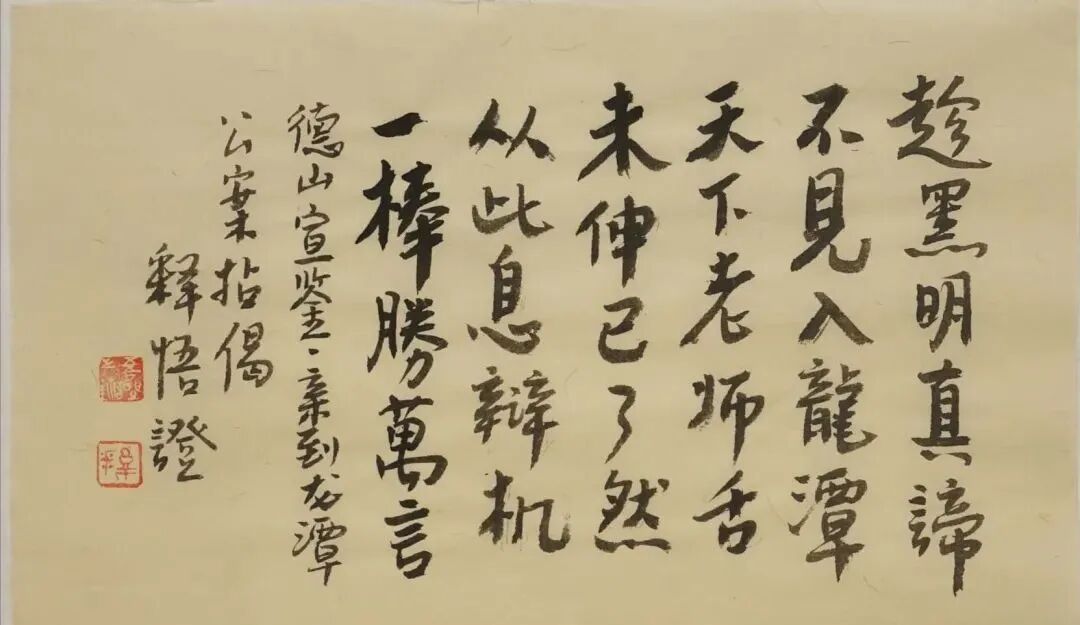 趁黑明真諦
不見入龍潭
天下老师舌
未伸已了然
从此息辩机
一棒勝萬言
德山宣鉴、亲到龙潭
公案拈偈
释悟證